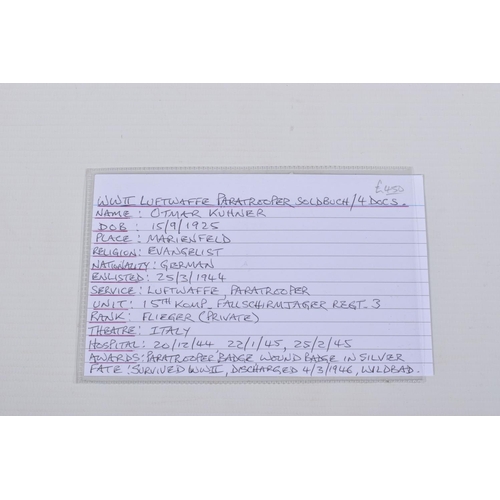 £450
WWII LUFTWAFFE PARATROOPER SOLDBUCH/4 DOCS.
NAME: OTMAR KUHNER
DOB: 15/9/1925
PLACE: MARIENFELD
RELIGION: EVANGELIST
NATIONALITY: GERMAN
ENLISTED: 25/3/1944
SERVICE: LUFTWAFFE, PARATROOPER
UNIT: 15TH KOMP. FALLSCHIRMJAGER REGT. 3
RANK: FLIEGER (PRIVATE)
THEATRE: ITALY
HOSPITAL: 20/12/44 22/1/45, 25/2/45
AWARDS: PARATROOPER BADGE WOUND BADGE IN SILVER
FATE: SURVIVED WWII, DISCHARGED 4/3/1946, WILDBAD.